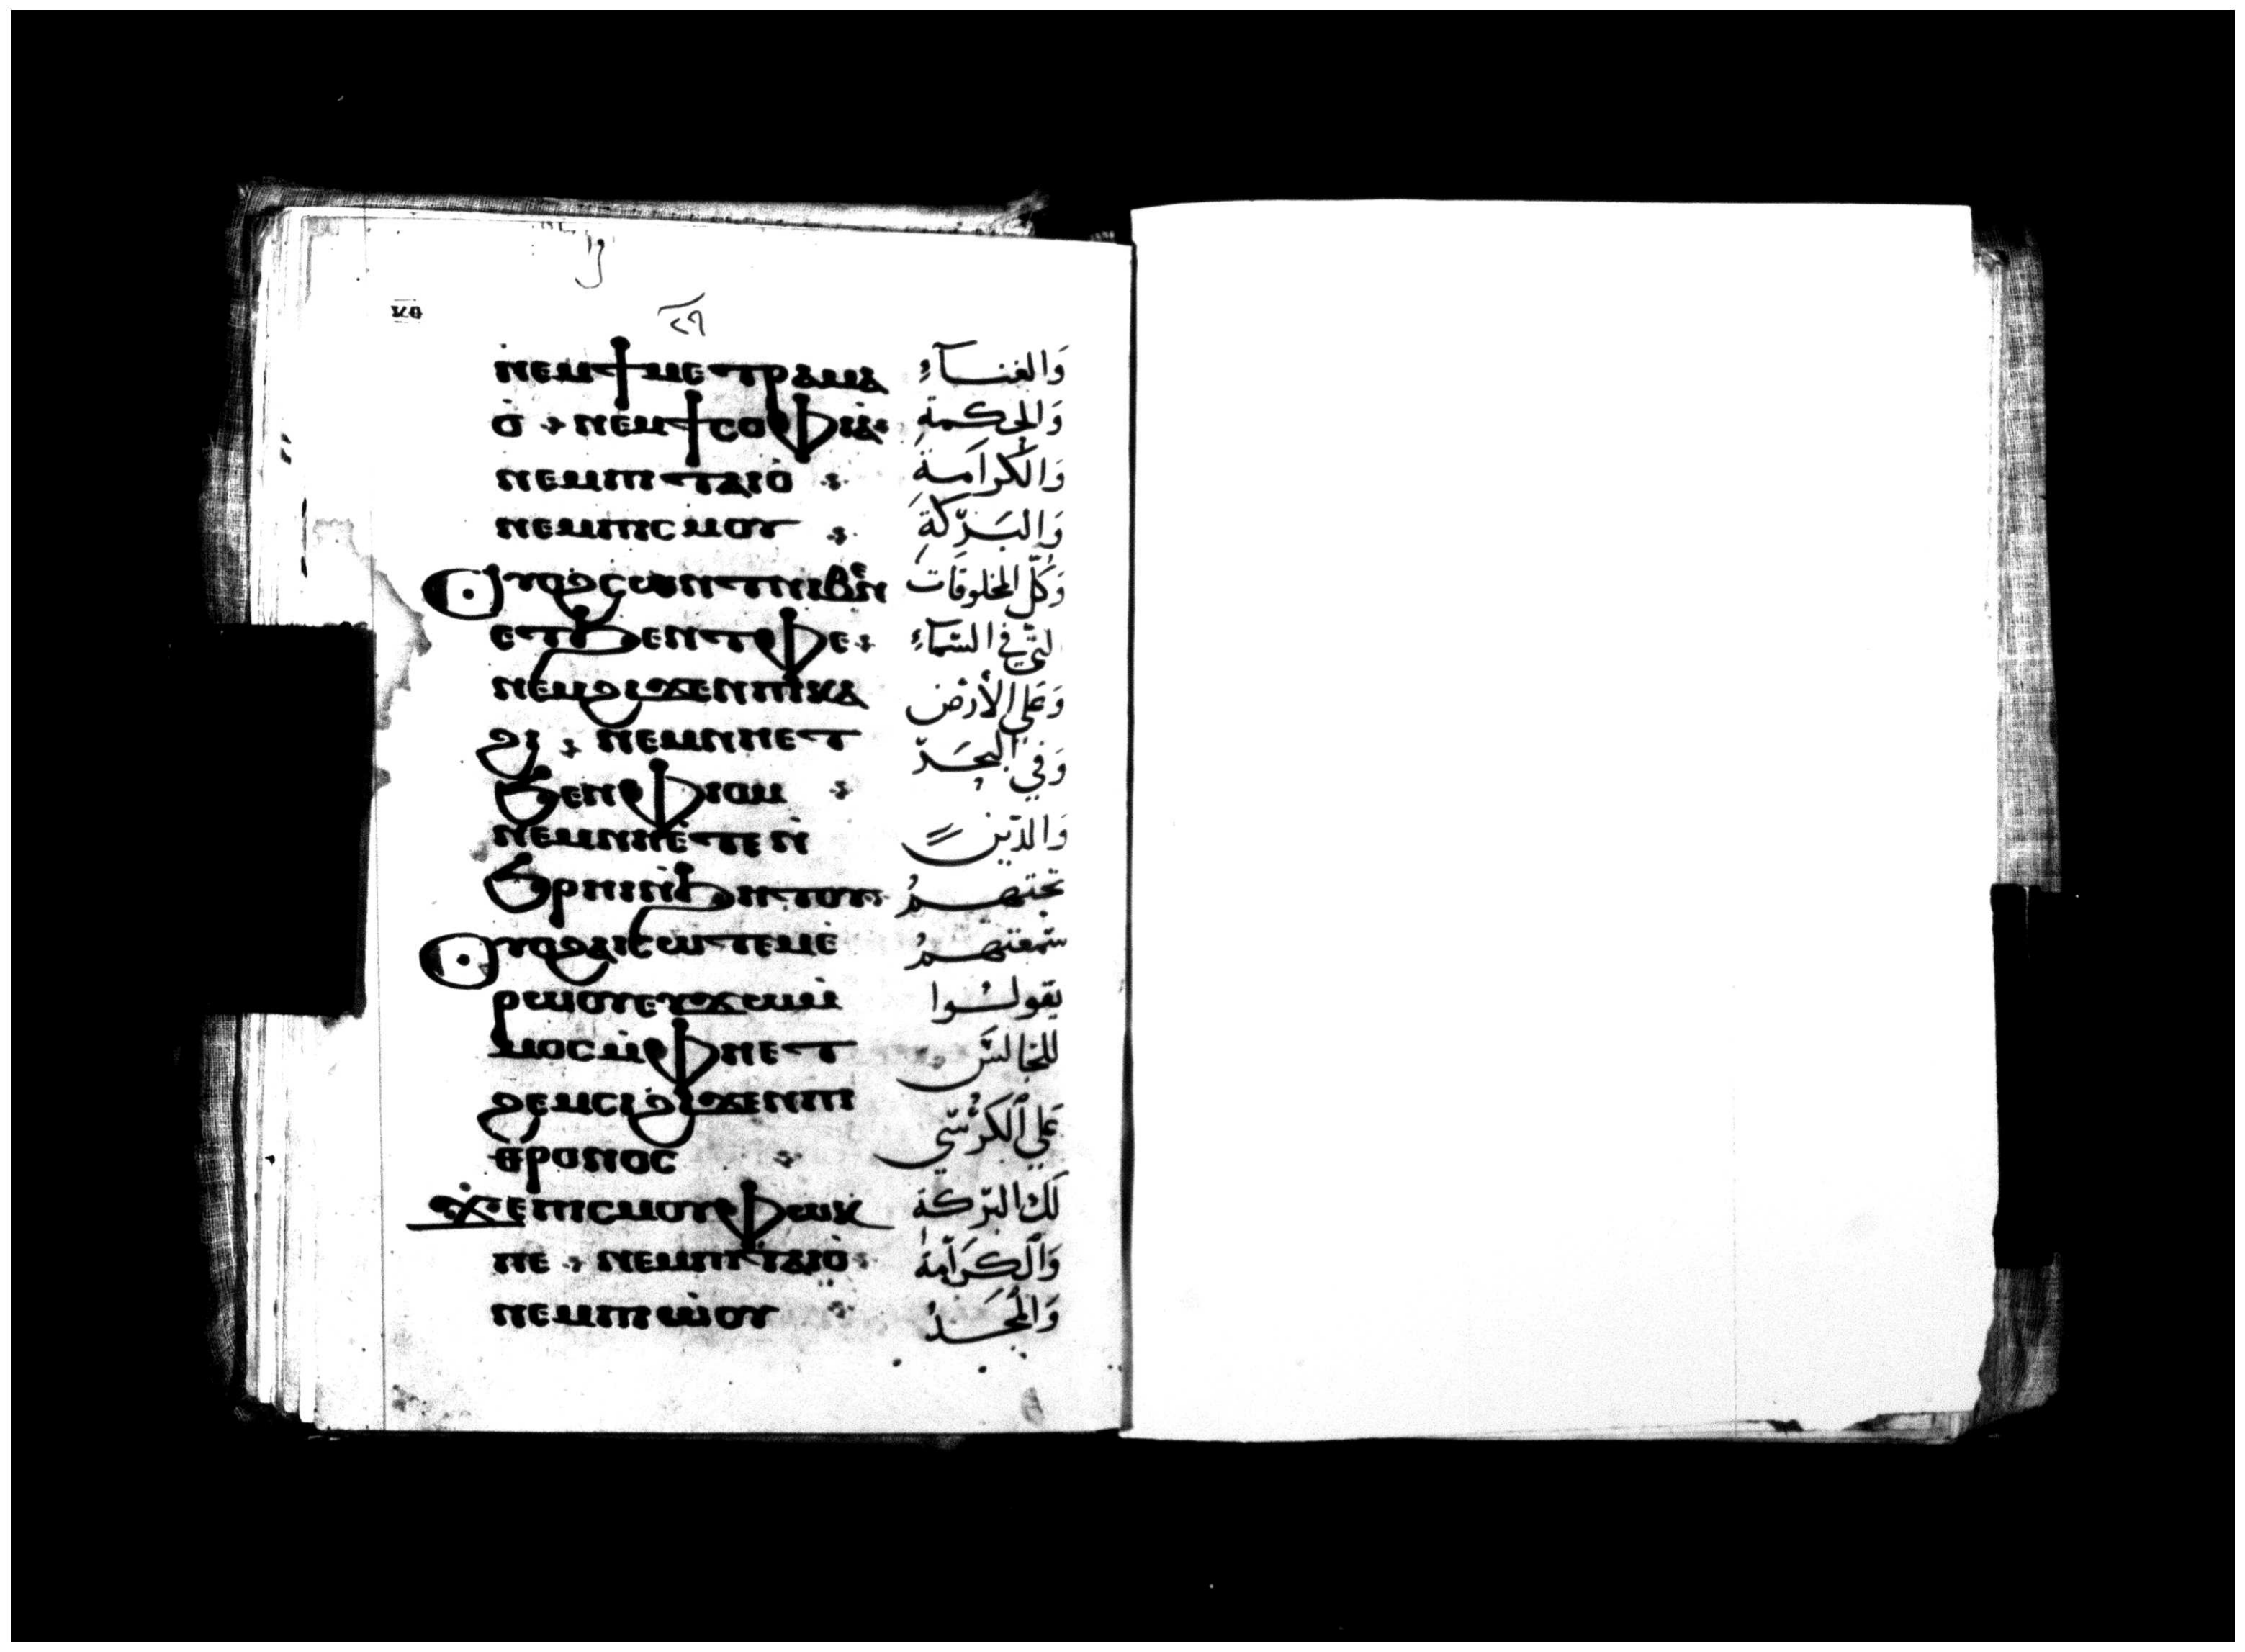 ⲕⲑ
٢٩
ⲛⲉⲙϯⲙⲉⲧⲣⲁⲙⲁ وَالغنآءِ
ⲟ̀ ⲛⲉⲙϯⲥⲟⲫⲓⲁ̀ وَالحكمة
ⲛⲉⲙⲡⲓⲧⲁⲓⲟ̀ وَالكرامة
ⲛⲉⲙⲡⲓⲥⲙⲟⲩ وَالبَرَكة
ⲟⲩⲟϩⲥⲱⲛⲧⲛⲓⲃⲉⲛ وَكلّ المخلوقات
ⲉⲧϧⲉⲛⲧⲫⲉ لتي في السّمآءِ
ⲛⲉⲙϩⲓϫⲉⲛⲡⲓⲕⲁ وَعَلي الأرض
ϩⲓ ⲛⲉⲙⲛⲏⲉⲧ وَفي البحَر
ϧⲉⲛⲫⲓⲟⲙ
ⲛⲉⲙⲛⲏⲉ̀ⲧⲉⲛ̀ وَالذين
ϧⲣⲏⲓⲛ̀ϧⲏⲧⲟⲩ تحتهمُ
ⲟⲩⲟϩⲁⲓⲥⲱⲧⲉⲙⲉ̀ سمعتهمُ
ⲣⲱⲟⲩⲉⲩϫⲱⲙ̀ يقولوا
ⲙⲟⲥⲙ̀ⲫⲏⲉⲧ للجالسَ
ϩⲉⲙⲥⲓϩⲓϫⲉⲛⲡⲓ عَلي الكرسّي
ⲑⲣⲟⲛⲟⲥ
ϫⲉⲡⲓⲥⲙⲟⲩⲫⲱⲕ لك البَركة
ⲡⲉ ⲛⲉⲙⲡⲓⲧⲁⲓⲟ̀ وَالكَرَامة
ⲛⲉⲙⲡⲓⲱ̀ⲟⲩ وَالمجَدُ